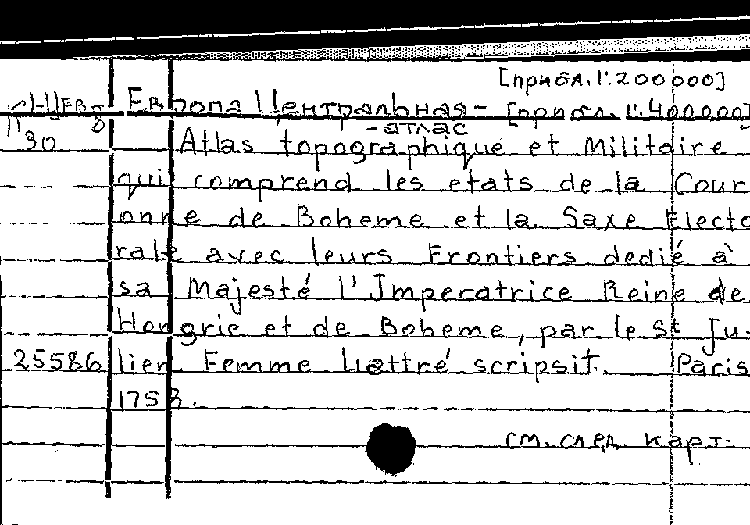 [прибл. 1:200000]
Европа Центральная - [прибл. 1:400000]
- атлас
30 Atlas topographique et Militaire
qui comprend les etats de la Cour
onne de Boheme et la Saxe Electo
rale avec leurs Frontiers dedié à
sa Majesté l'Imperatrice Reine de
Hongrie et de Boheme, par le St Ju-
25586 lien Femme Lattré scripsit. Paris
1758.
см. след. карт.